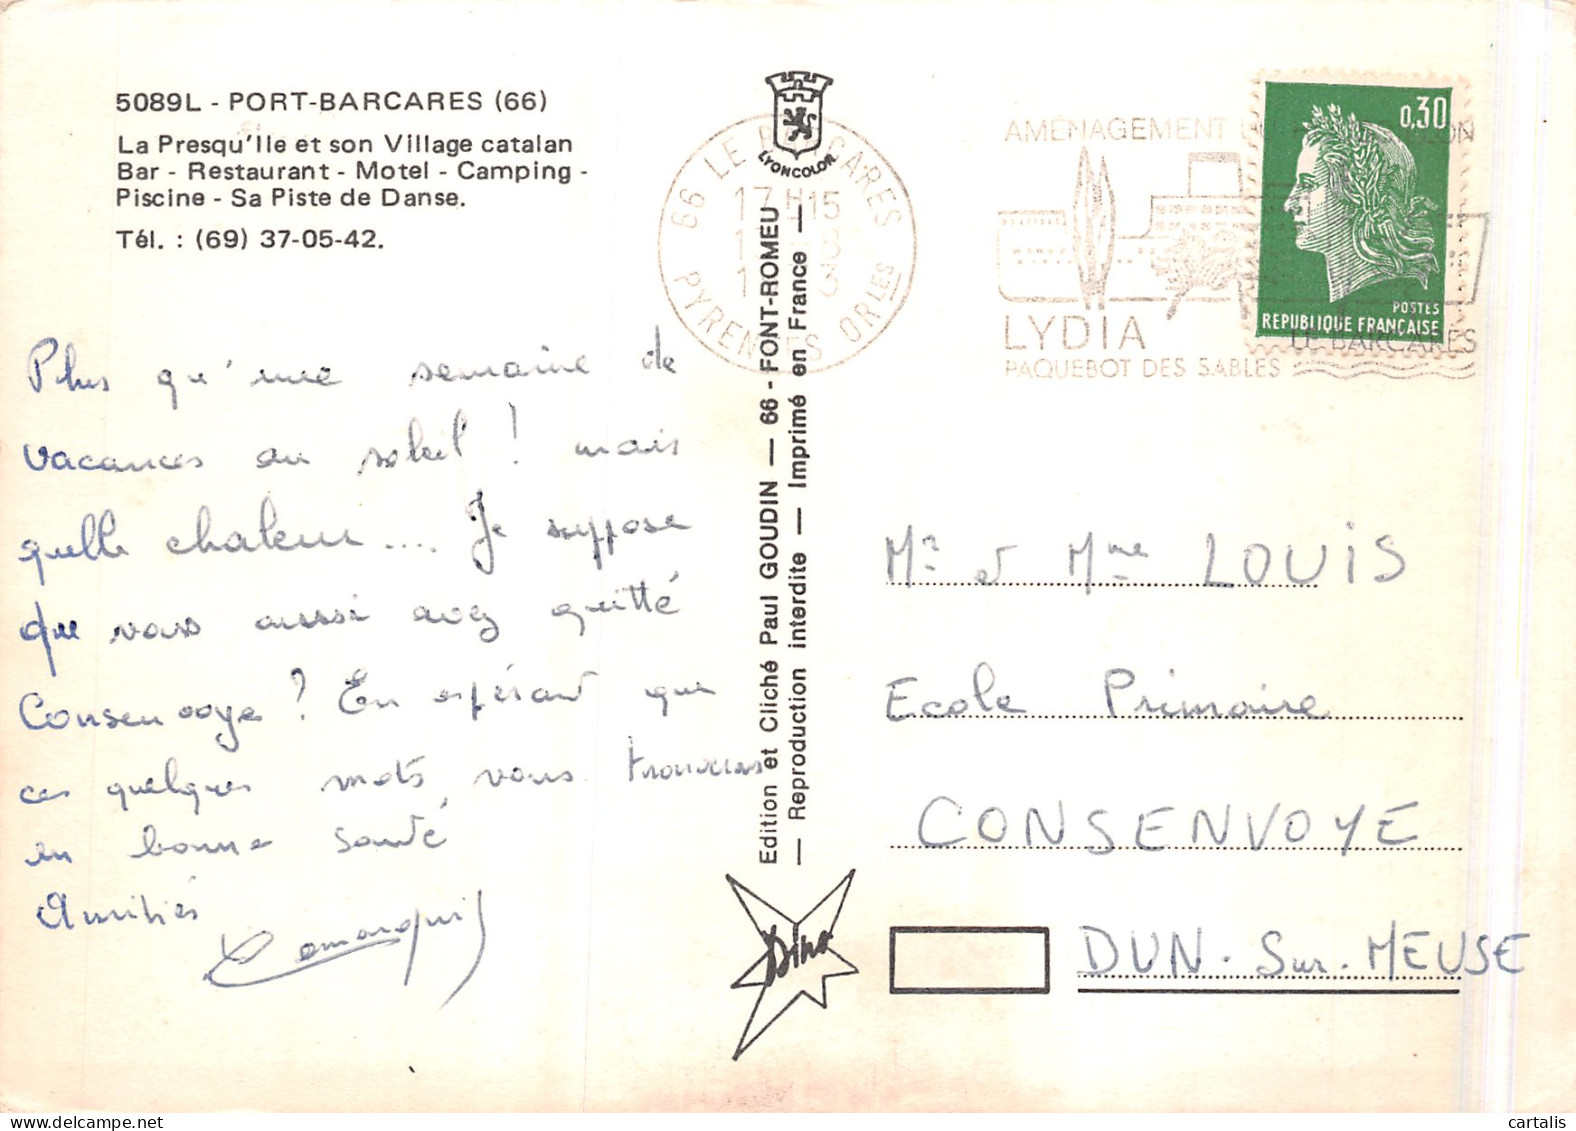 5089L - PORT-BARCARES (66)
La Presqu'Ile et son Village catalan
Bar - Restaurant - Motel - Camping -
Piscine - Sa Piste de Danse.
Tél. : (69) 37-05-42.
Plus qu'une semaine de
vacances au soleil ! mais
quelle chaleur.... Je suppose
que vous aussi avez quitté
Consenvoye ? En espérant que
ces quelques mots vous trouverons
en bonne santé
Amitiés
LYONCOLOR
Edition et Cliché Paul GOUDIN — 66 - FONT-ROMEU
— Reproduction interdite — Imprimé en France —
Dino
66 LE BARCARES
17H15
PYRENEES ORLES
AMÉNAGEMENT
LYDIA
PAQUEBOT DES SABLES
LE BARCARÈS
0,30
POSTES
REPUBLIQUE FRANÇAISE
Mr et Mme LOUIS
Ecole Primaire
CONSENVOYE
DUN. Sur. MEUSE
cartalis